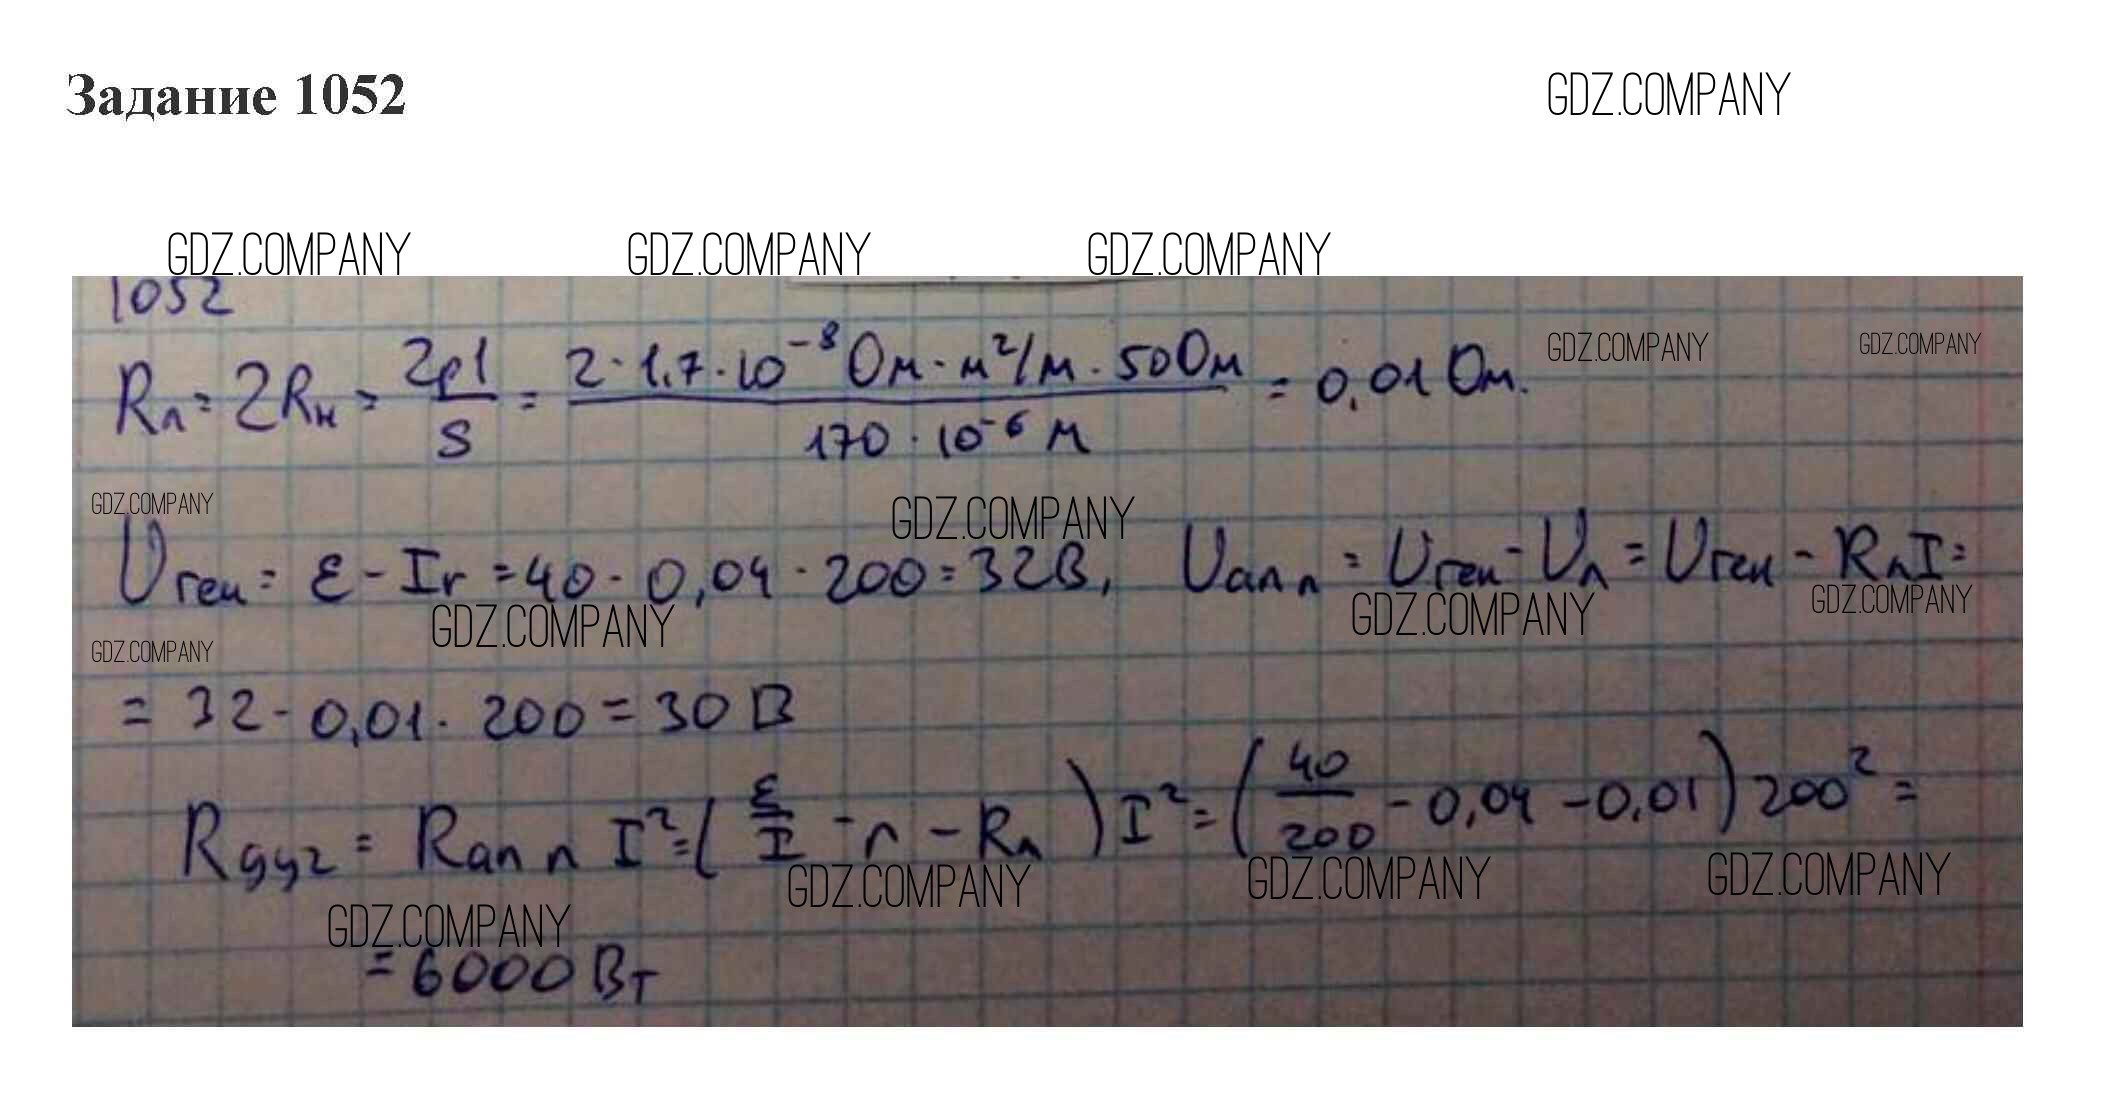 Задание 1052
GDZ.COMPANY
GDZ.COMPANY GDZ.COMPANY GDZ.COMPANY
1052
Rл = 2Rн = 2ρl/S = 2·1,7·10⁻⁸ Ом·м²/м·50Ом / 170·10⁻⁶ м = 0,01 Ом.
GDZ.COMPANY GDZ.COMPANY
GDZ.COMPANY GDZ.COMPANY
Uген = ε - Ir = 40 - 0,04 · 200 = 32В, Uапп = Uген - Uл = Uген - RлI =
GDZ.COMPANY GDZ.COMPANY GDZ.COMPANY
GDZ.COMPANY
= 32 - 0,01 · 200 = 30 В
Rдуг = Rапп I² = (ε/I - r - Rл) I² = (40/200 - 0,04 - 0,01) 200² =
GDZ.COMPANY GDZ.COMPANY GDZ.COMPANY
GDZ.COMPANY
= 6000 Вт